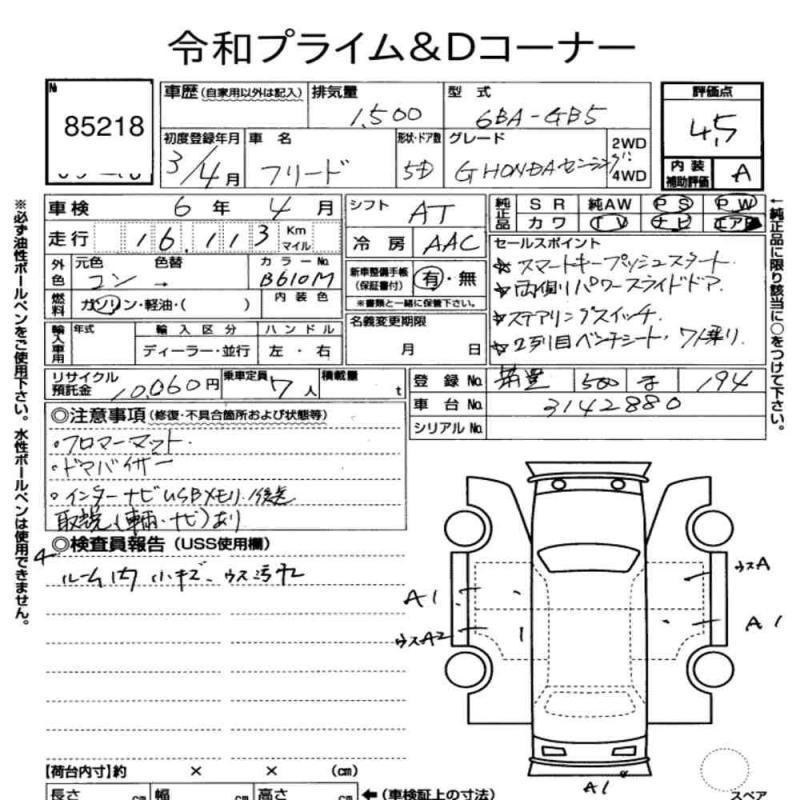 令和プライム&Dコーナー
№
85218
車歴(自家用以外は記入)
排気量
1,500
型式
6BA-GB5
評価点
4.5
初度登録年月
3/4月
車名
フリード
形状・ドア数
5D
グレード
G HONDAセンシング
2WD
4WD
内装
補助評価
A
車検 6年4月
シフト AT
純正品 SR 純AW PS PW
カワ TV ナビ エアB
走行 16,113 Km マイル
冷房 AAC
セールスポイント
外色 元色 色替 カラーNo.
コン → B610M
新車整備手帳 (保証書付) 有・無
※書類と一緒に保管下さい。
☆スマートキープッシュスタート
☆両側パワースライドドア
☆ステアリングスイッチ
☆2列目ベンチシート、7人乗り
燃料 ガソリン・軽油・( ) 内装色
名義変更期限
月 日
輸入車用 年式 輸入区分 ハンドル
ディーラー・並行 左・右
リサイクル預託金 10,060円 乗車定員 7人 積載量 t
登録No. 500 194
車台No. 3142880
シリアルNo.
◎注意事項(修復・不具合箇所および状態等)
・フロマーマット
・ドアバイザー
・インターナビUSBメモリ
取説(車輌・ナビ)あり
◎検査員報告(USS使用欄)
ルーム内 小キズ、ウス汚れ
ウスA
A1
A1
ウスA2
A1
スペア
【荷台内寸】約 × × (cm)
長さ cm 幅 cm 高さ cm ←(車検証上の寸法)
※必ず油性ボールペンをご使用下さい。水性ボールペンは使用できません。
←純正品に限り該当に○をつけて下さい。